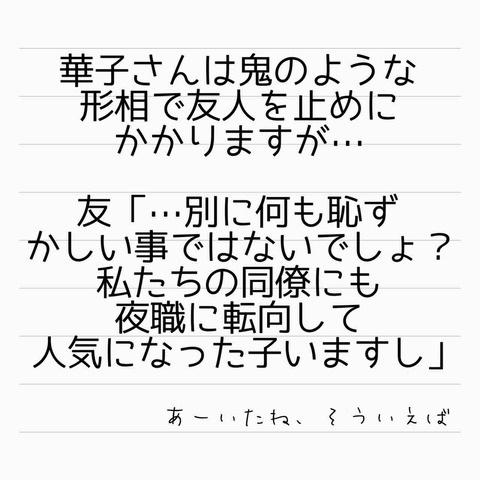 華子さんは鬼のような
形相で友人を止めに
かかりますが…
友「…別に何も恥ず
かしい事ではないでしょ？
私たちの同僚にも
夜職に転向して
人気になった子いますし」
あーいたね、そういえば